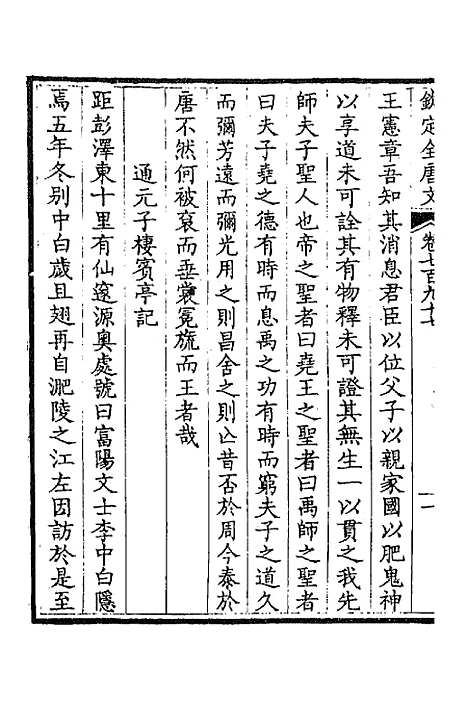 欽定全唐文 卷七百九十七 十一
王憲章吾知其消息君臣以位父子以親家國以肥鬼神
以享道未可詮其有物釋未可證其無生一以貫之我先
師夫子聖人也帝之聖者曰堯王之聖者曰禹師之聖者
曰夫子堯之德有時而息禹之功有時而窮夫子之道久
而彌芳遠而彌光用之則昌舍之則亾昔否於周今泰於
唐不然何被袞而垂裳冕旒而王者哉
通元子棲賓亭記
距彭澤東十里有仙𨗉源奧處號曰富陽文士李中白隱
焉五年冬別中白歲且翅再自淝陵之江左因訪於是至